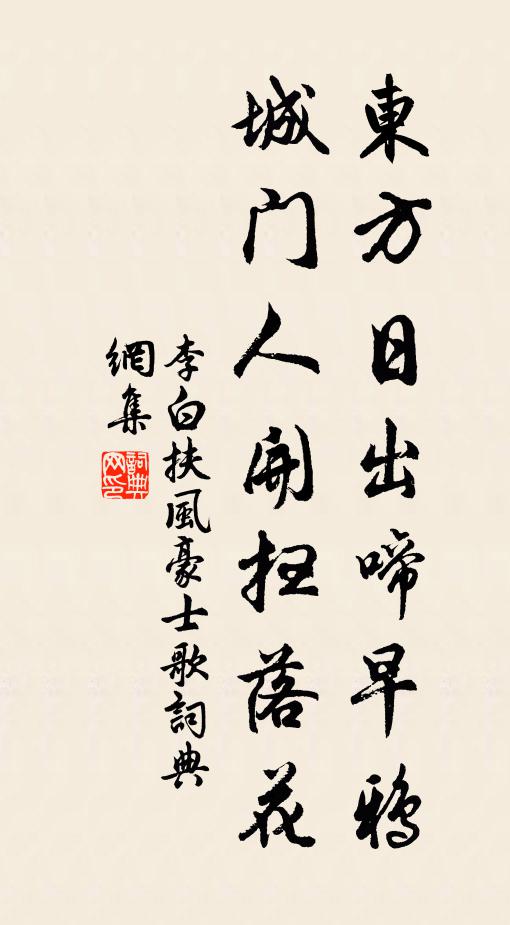 東方日出啼早鴉
城門人開掃落花
李白扶風豪士歌詞典
網集
詞典網印